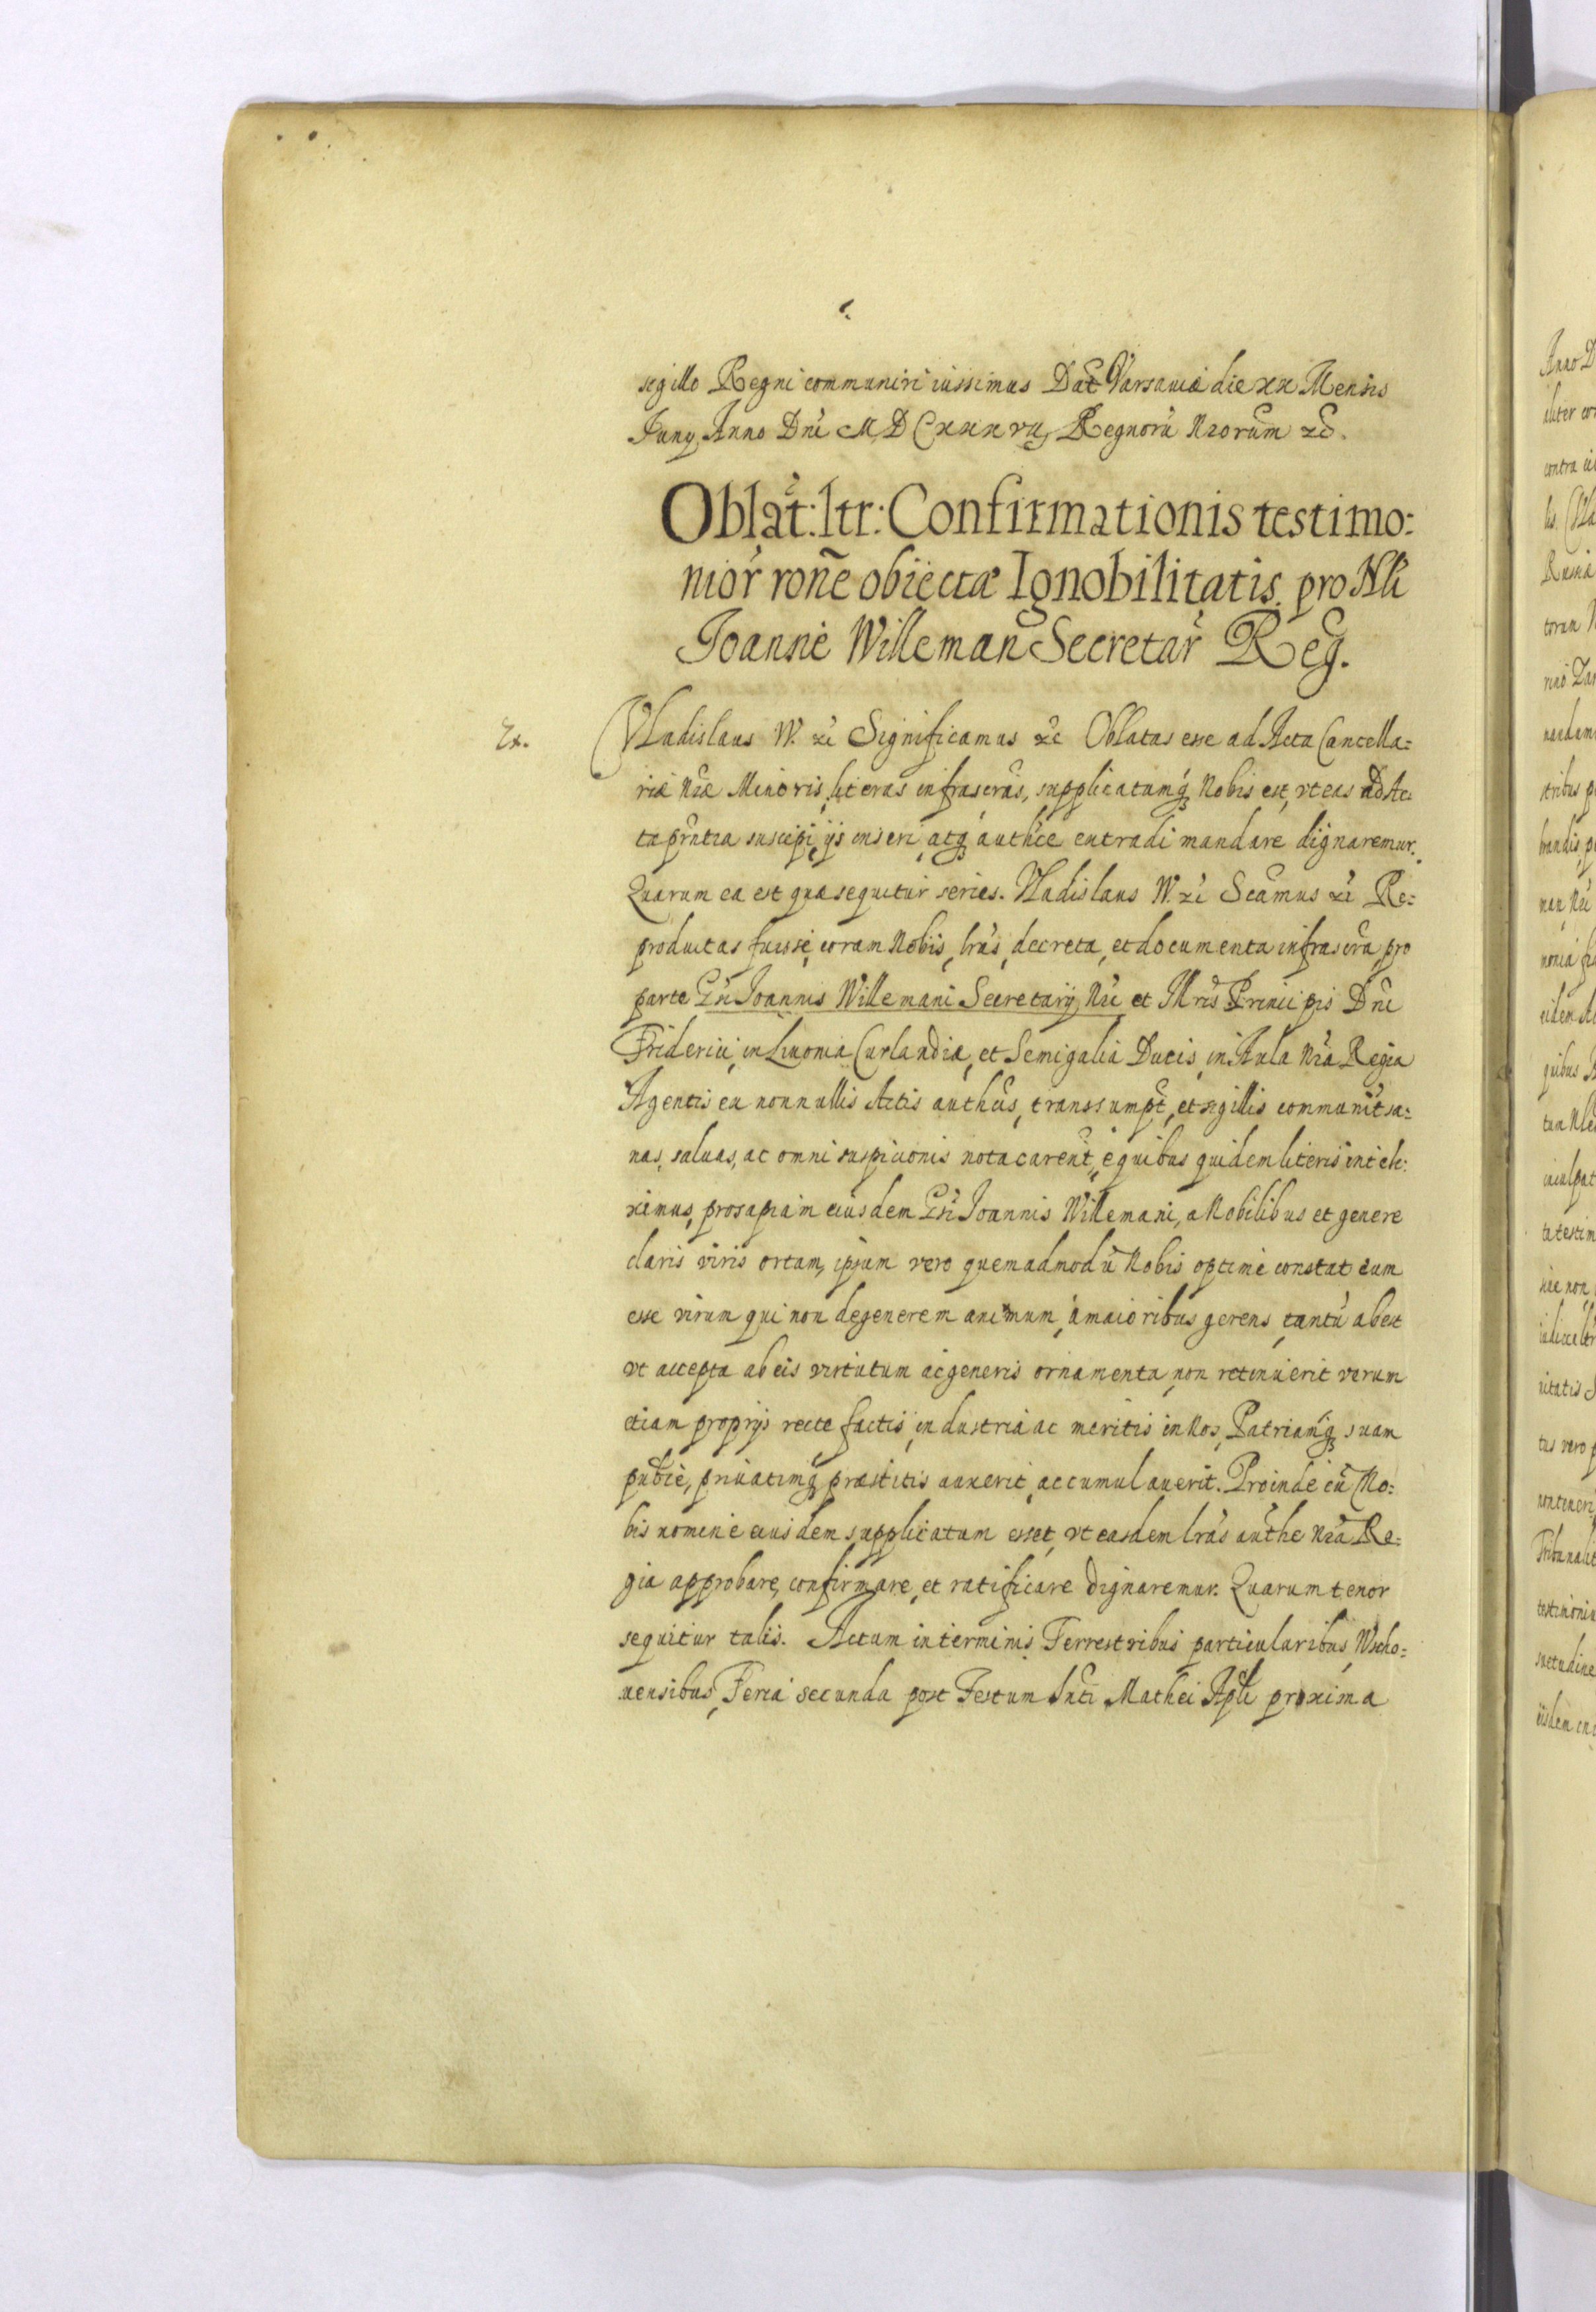 sigillo Regni communiri iussimus Dat Varsaviæ die xx Mensis
Juny Anno Dni M D C xxx vij Regnorũ Nrorum &c.
Oblat: ltr: Confirmationis testimo:
nior rone obiectæ Ignobilitatis pro Nli
Joanne Willeman Secretar Reg.
Ex.
Vladislaus IV. &c Significamus &c Oblatas esse ad Acta Cancella:
riæ Nræ Minoris, literas infrascras, supplicatumq; Nobis est, vt eas ad Ac:
ta prntia suscipi, ijs inseri, atq; authce extradi mandare dignaremur.
Quarum ea est quæ sequitur series. Vladislaus IV. &c Scamus &c Re:
productas fuisse, coram Nobis, lras, decreta, et documenta infrascra, pro
parte Gn Joannis Willemani Secretarij Nri et Illris Principis Dni
Friderici, in Livonia Curlandiæ, et Semigaliæ Ducis, in Aula Nra Regia
Agentis ex nonnullis Actis authcis, transsumpt, et sigillis communit sa:
nas, saluas, ac omni suspicionis nota carent, e quibus quidem literis intele:
ximus, prosapiam eiusdem Gn Joannis Willemani, a Nobilibus et genere
claris viris ortam, ipsum vero quemadmodũ Nobis optime constat eum
esse virum qui non degenerem animum, a maioribus gerens, tantũ abest
vt accepta ab eis virtutum ac generis ornamenta, non retinuerit verum
etiam proprijs recte factis, industria ac meritis in Nos, Patriamq; suam
publce, priuatimq; præstitis auxerit, accumulauerit. Proinde cũ No:
bis nomine eiusdem supplicatum esset, vt easdem lras authe Nra Re:
gia approbare, confirmare, et ratificare dignaremur. Quarum tenor
sequitur talis. Actum in terminis Terrestribus particularibus, Wscho:
uensibus, Feria secunda post Festum Snti Mathei Apli proxima